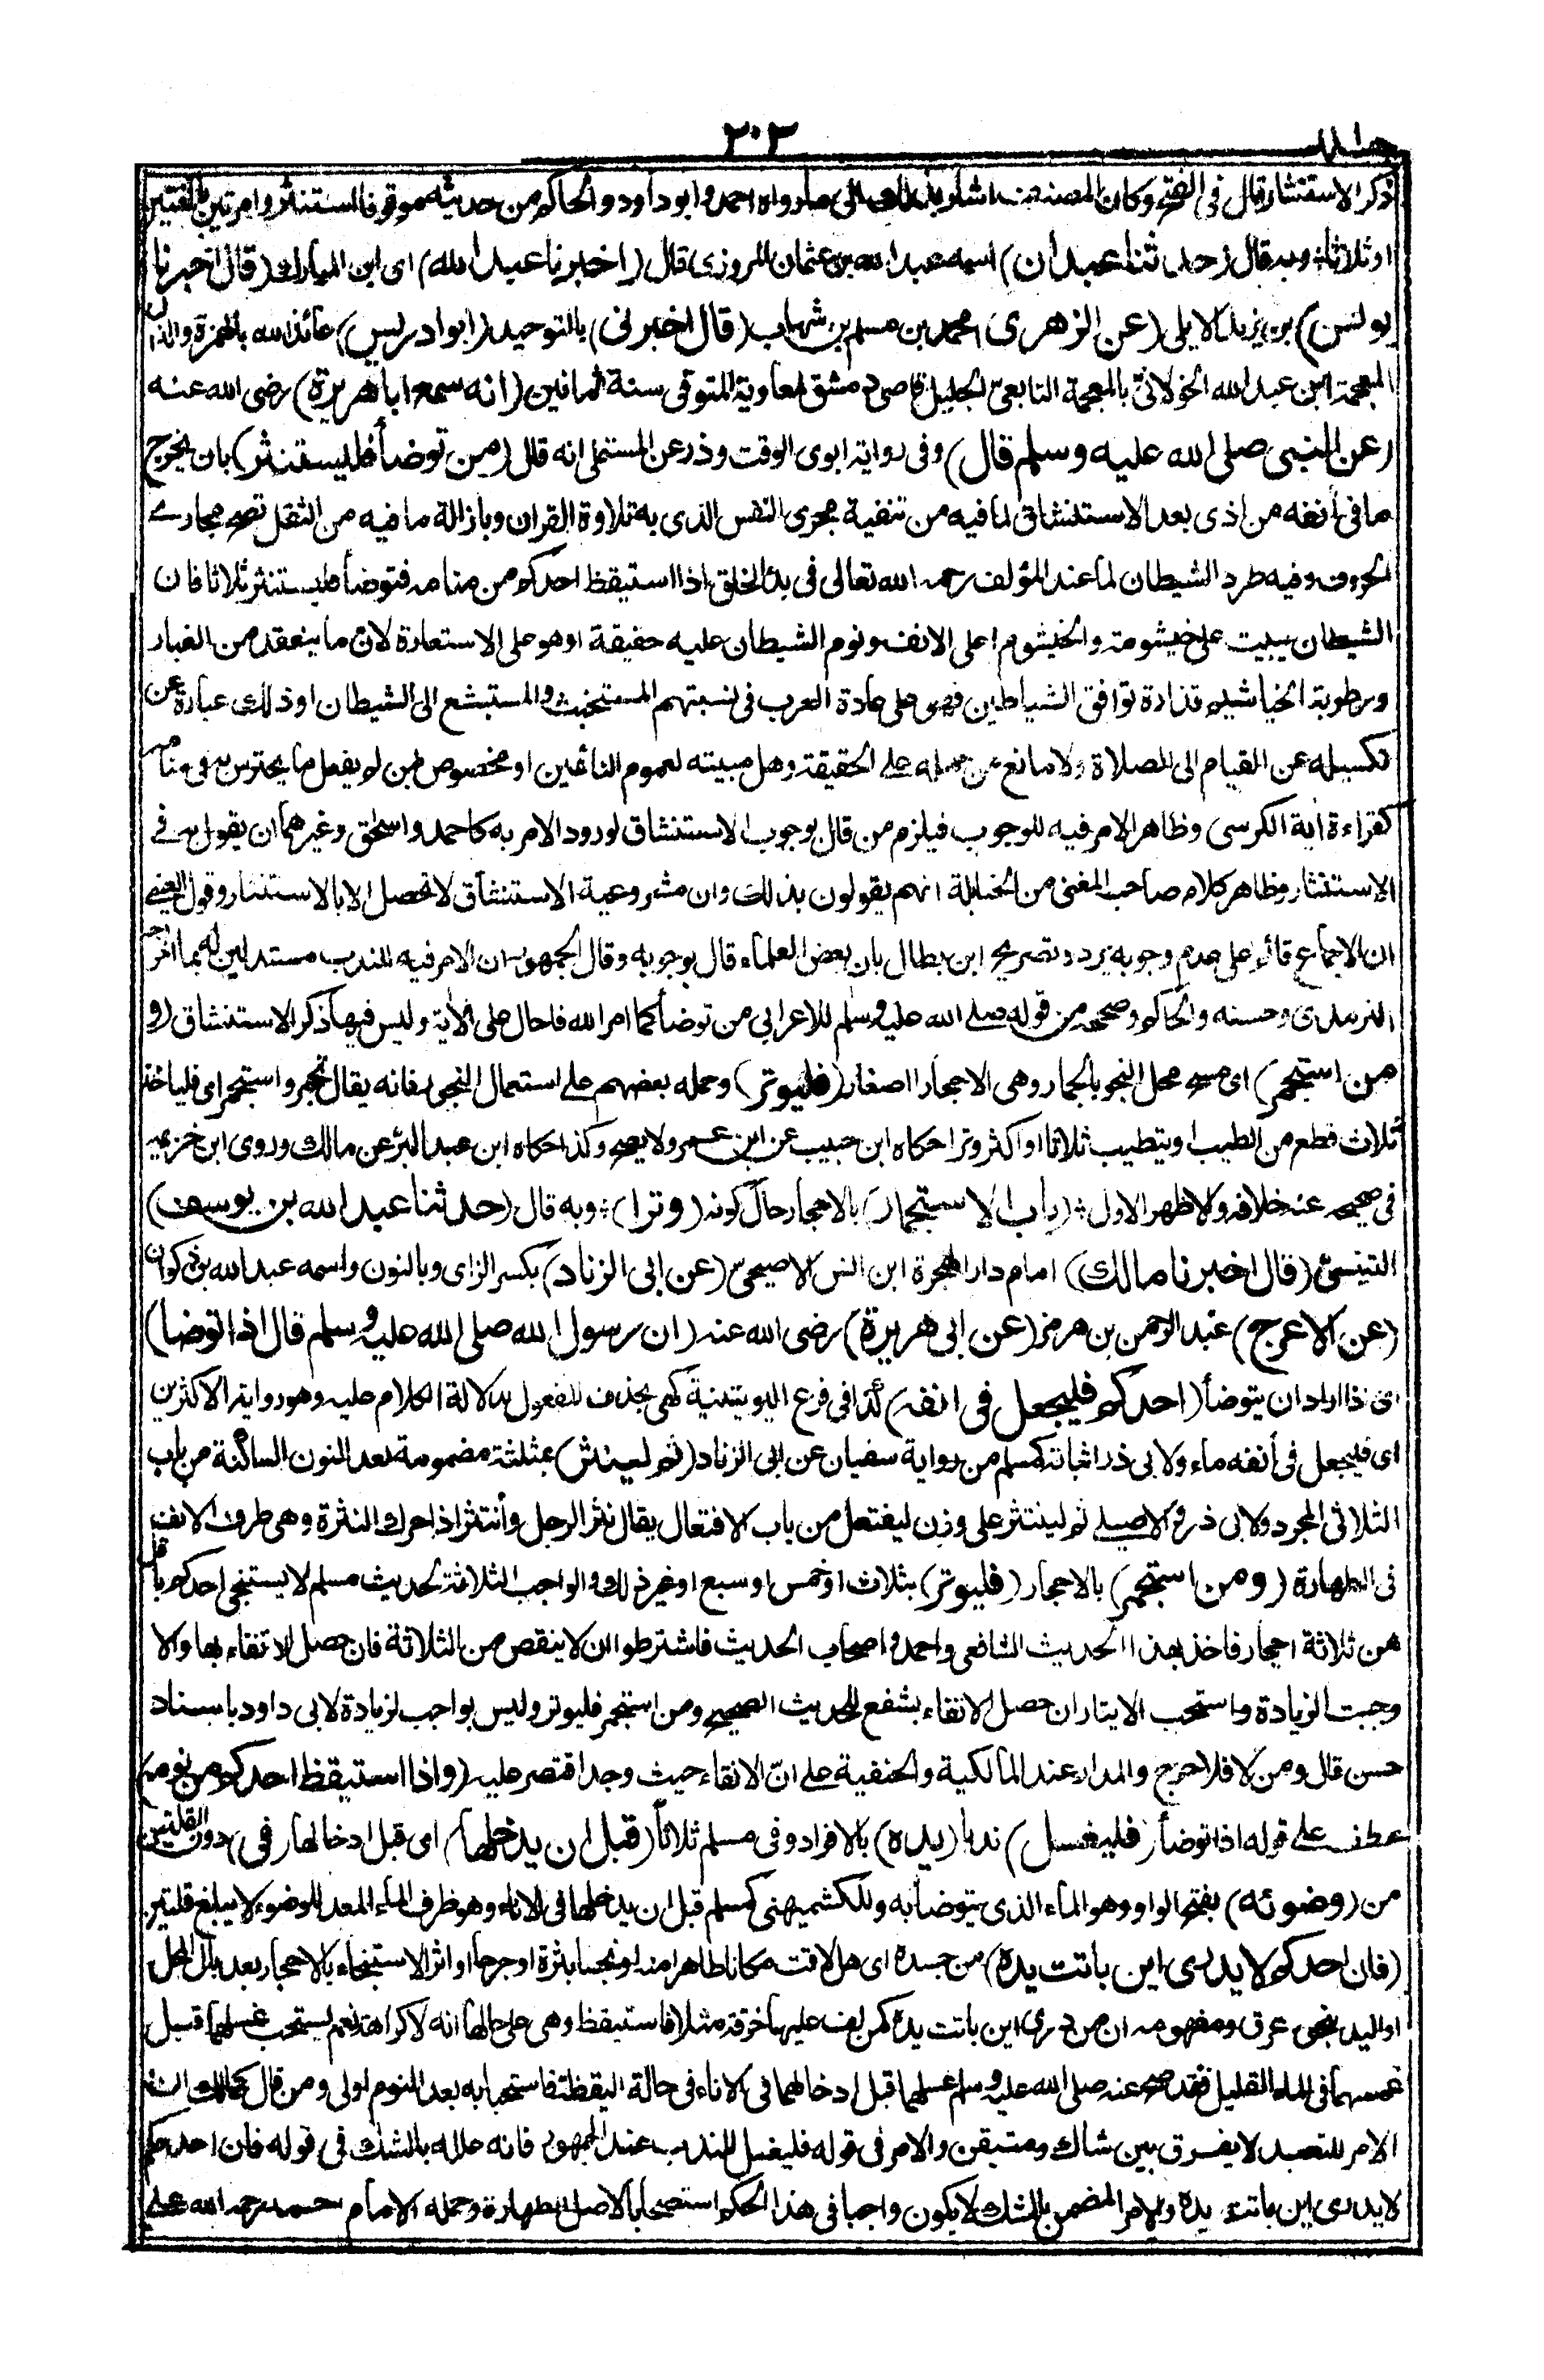 ٢٠٣
ذكر الاستنثار قال في الفتح وكان المصنف اشار بذلك الى ما رواه احمد وابو داود والحاكم من حديثه موقوفا استنثروا مرتين بالغتين
او ثلاثا وبه قال (حدثنا عبدان) اسمه عبد الله بن عثمان المروزى قال (اخبرنا عبد الله) اى ابن المبارك (قال اخبرنا
يونس) بن يزيد الايلى (عن الزهرى) محمد بن مسلم بن شهاب (قال اخبرنى) بالتوحيد (ابو ادريس) عائذ الله بالهمزة والذال
المعجمة ابن عبد الله الخولانى بالمعجمة التابعى الجليل قاضى دمشق لمعاوية المتوفى سنة ثمانين (انه سمع ابا هريرة) رضى الله عنه
(عن النبى صلى الله عليه وسلم قال) وفى رواية ابوى الوقت وذر عن المستملى انه قال (من توضأ فليستنثر) بان يخرج
ما فى أنفه من اذى بعد الاستنشاق لما فيه من تنقية مجرى النفس الذى به تلاوة القران وبازالة ما فيه من الثقل تصح مجارے
الحروف وفيه طرد الشيطان لما عند المؤلف رحمه الله تعالى فى بدء الخلق اذا استيقظ احدكم من منامه فتوضأ فليستنثر ثلاثا فان
الشيطان يبيت على خيشومه والخيشوم اعلى الانف ونوم الشيطان عليه حقيقة او هو على الاستعارة لان ما ينعقد من الغبار
ورطوبة الخياشيم قذارة توافق الشياطين فهو على عادة العرب فى نسبتهم المستخبث والمستبشع الى الشيطان او ذلك عبارة عن
تكسيله عن القيام الى الصلاة ولا مانع من حمله على الحقيقة وهل مبيته لعموم النائمين او مخصوص بمن لم يفعل ما يحترس به فى منامه
كقراءة اية الكرسى وظاهر الامر فيه للوجوب فيلزم من قال بوجوب الاستنشاق لورود الامر به كاحمد واسحق وغيرهما ان يقول به فے
الاستنثار وظاهر كلام صاحب المغنى من الحنابلة انهم يقولون بذلك وان مشروعية الاستنشاق لا تحصل الا بالاستنثار وقول العينے
ان الاجماع قائم على عدم وجوبه يرده تصريح ابن بطال بان بعض العلماء قال بوجوبه وقال الجمهور ان الامر فيه للندب مستدلين له بما اخرجه
الترمذى وحسنه والحاكم وصححه من قوله صلى الله عليه وسلم للاعرابى من توضأ كما امر الله فاحال على الأية وليس فيها ذكر الاستنشاق (و
من استجمر) اى مسح محل النجو بالجمار وهى الاحجار الصغار (فليوتر) وحمله بعضهم على استعمال البخور فانه يقال تجمر واستجمر اى فلياخذ
ثلاث قطع من الطيب او يتطيب ثلاثا او اكثر وترا حكاه ابن حبيب عن ابن عمر ولا يصح وكذا حكاه ابن عبد البر عن مالك وروى ابن خزيمه
فى صحيحه عنه خلافه والاظهر الاول (باب الاستجمار) بالاحجار حال كونه (وترا) وبه قال (حدثنا عبد الله بن يوسف)
التنيسى (قال اخبرنا مالك) امام دار الهجرة ابن انس الاصبحى (عن ابى الزناد) بكسر الزاى وبالنون واسمه عبد الله بن ذكوان
(عن الاعرج) عبد الرحمن بن هرمز (عن ابى هريرة) رضى الله عنه (ان رسول الله صلى الله عليه وسلم قال اذا توضا)
اى اذا اراد ان يتوضأ (احدكم فليجعل فى انفه) كذا فى فرع اليونينية كهى بحذف المفعول لدلالة الكلام عليه وهو رواية الاكثرين
اى فليجعل فى أنفه ماء ولابى ذر اثباته كمسلم من رواية سفيان عن ابى الزناد (ثم لينثر) بمثلثة مضمومة بعد النون الساكنة من باب
الثلاثى المجرد ولابى ذر والاصيلے ثم لينتثر على وزن ليفتعل من باب الافتعال يقال نثر الرجل وأنتثر اذا حرك النثرة وهى طرف الانف
فى الطهارة (ومن استجمر) بالاحجار (فليوتر) بثلاث او خمس او سبع او غير ذلك والواجب الثلاثة لحديث مسلم لا يستنجى احدكم باقل
من ثلاثة احجار فاخذ بهذا الحديث الشافعى واحمد واصحاب الحديث فاشترطوا ان لا ينقص من الثلاثة فان حصل الانقاء بها والا
وجبت الزيادة واستحب الايتار ان حصل الانقاء بشفع للحديث الصحيح ومن استجمر فليوتر وليس بواجب لزيادة لابى داود باسناد
حسن قال ومن لا فلا حرج والمدار عند المالكية والحنفية على ان الانقاء حيث وجد اقتصر عليه (واذا استيقظ احدكم من نومه)
عطف على قوله اذا توضأ (فليغسل) ندبا (يده) بالافراد وفى مسلم ثلاثا (قبل ان يدخلها) اى قبل ادخالها (فى) دون القلتين
من (وضوئه) بفتح الواو وهو الماء الذى يتوضأ به وللكشميهنى كمسلم قبل ان يدخلها فى الاناء وهو ظرف الماء المعد للوضوء لا يبلغ قلتين
(فان احدكم لا يدرى اين باتت يده) من جسده اى هل لاقت مكانا طاهرا منه او نجسا بثرة او جرحا او اثر الاستنجاء بالاحجار بعد بلل المحل
او اليد بنحو عرق ومفهومه ان من درى اين باتت يده كمن لف عليها خرقة مثلا فاستيقظ وهى على حالها انه لا كراهة نعم يستحب غسلهما قبل
غمسهما فى الماء القليل فقد صح عنه صلى الله عليه وسلم غسلهما قبل ادخالهما فى الاناء فى حالة اليقظة فاستحبابه بعد النوم اولى ومن قال كمالك ان
الامر للتعبد لا يفرق بين شاك ومتيقن والامر فى قوله فليغسل للندب عند الجمهور فانه علله بالشك فى قوله فان احدكم
لا يدرى اين باتت يده والامر المضمن بالشك لا يكون واجبا فى هذا الحكم استصحابا لاصل الطهارة وحمله الامام احمد رحمه الله على